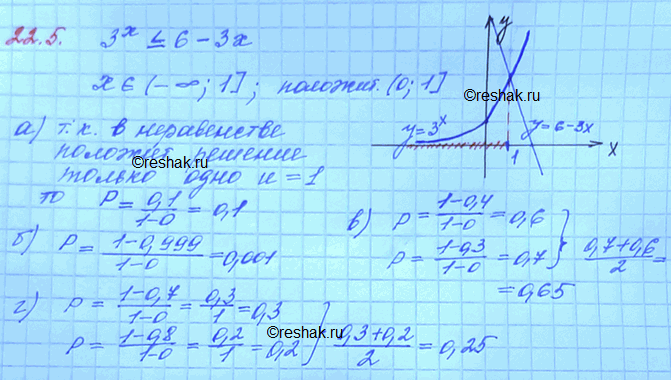 22.5. 3ˣ ≤ 6 − 3x
x ∈ (−∞; 1]; положит. (0; 1]
y
©reshak.ru
y=3ˣ
y=6−3x
1
x
а) т.к. в неравенстве
положит решение
только одно и = 1
то P = 0,1/(1−0) = 0,1
б) P = (1−0,999)/(1−0) = 0,001
в) P = (1−0,4)/(1−0) = 0,6
P = (1−0,3)/(1−0) = 0,7 } (0,7+0,6)/2 =
= 0,65
г) P = (1−0,7)/(1−0) = 0,3/1 = 0,3
©reshak.ru
P = (1−0,8)/(1−0) = 0,2/1 = 0,2 } (0,3+0,2)/2 = 0,25